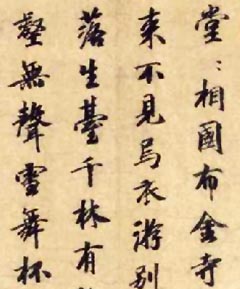 堂〻相國布金寺
来不見烏衣游别
落生臺千林有
壑無聲雪舞杯